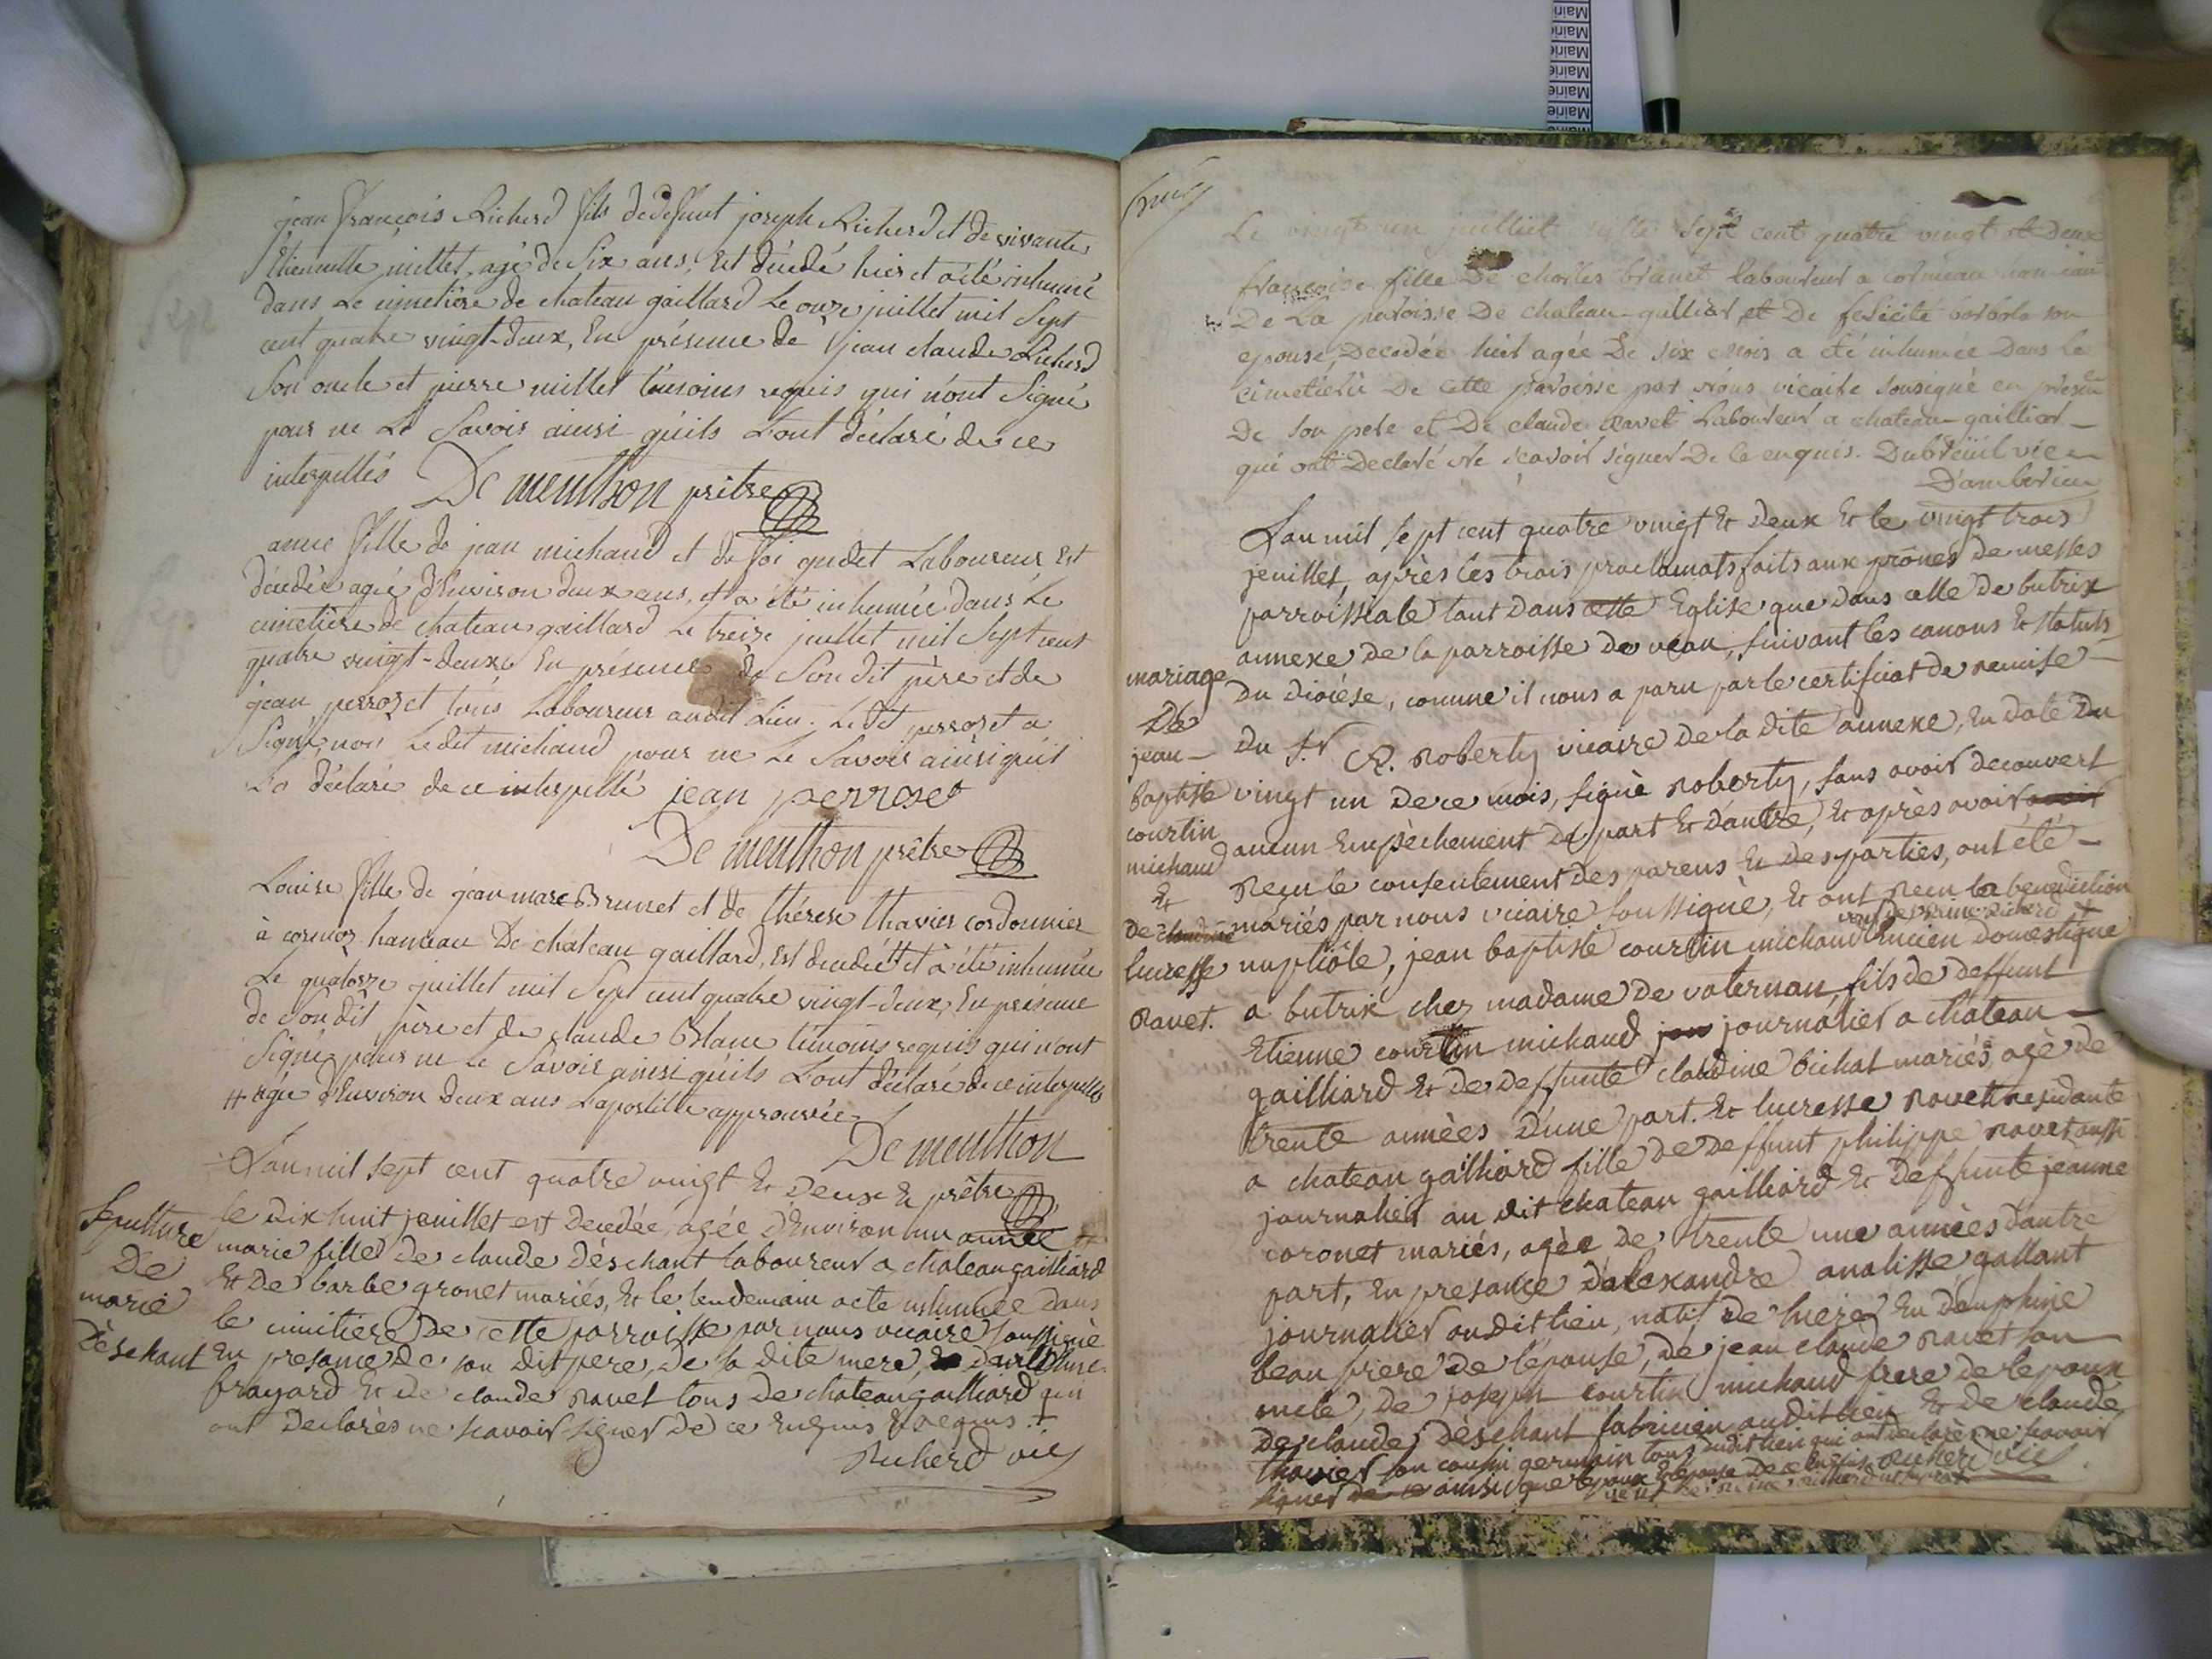 Mairie
Mairie
Mairie
Mairie
Mairie
Mairie
jean François Richerd fils de defunt joseph Richerd et de vivante
Etiennette millet, agé de Six ans, Est décédé hier et a été inhumé
dans Le cimetière de chateau gaillard Le onze juillet mil Sept
cent quatre vingt-deux, En présence de jean claude Richerd
Son oncle et pierre millet témoins requis qui n'ont Signé
pour ne Le Savoir ainsi qu'ils L'ont déclaré de ce
interpellés De menthon prêtre
anne fille de jean michaud et de foi gudet Laboureur Est
décédée agée d'Environ deux ans, et a été inhumée dans Le
cimetière de chateau gaillard Le treize juillet mil Sept cent
quatre vingt-deux En présence de Son dit père et de
jean perrozet tous Laboureur audit Lieu. Ledt perrozet a
Signé, non Ledit michaud pour ne Le Savoir ainsi qu'il
La déclaré de ce interpellé jean perrozet
De menthon prêtre
Louise fille de jean marc Brunet et de thérese thavier cordonnier
à cormoz hameau De chateau gaillard, Est décédée # et a été inhumée
Le quatorze juillet mil Sept cent quatre vingt-deux, En présence
de Son dit père et de claude Blanc témoins requis qui n'ont
Signé pour ne Le Savoir ainsi qu'ils L'ont déclaré de ce interpellés
# agée d'Environ deux ans L'apostille approuvée
De menthon
prêtre
Sepulture
De
marie
Dèschant
L'an mil sept cent quatre vingt Et Deux Et
le Dix huit jeuillet est Decedée, agée D'Environ une année
marie fille De claude Dèschant laboureur a chateau gailliard
Et De barbe gronet mariés, Et le lendemain a ete inhumée Dans
le cimitiere De cette parroisse par nous vicaire soussigné
En presance De son dit pere, De la dite mere,
frayard Et De claude ravet tous De chateau gailliard qui
ont Declarès ne scavoir signer De ce Enquis Et requis
Richerd vic
Le vingt un juilliet mille Sept cent quatre vingt et Deux
francoise fille De charles brunet laboureur a
De La paroisse De chateau-galliar et De felicité son
epouse, Decedée hier agée De six mois a été inhumée Dans Le
cimetierre De cette paroisse par nous vicaire sousigné en présence
De son pere et De claude ravet Laboureur a chateau-gailliar
qui ont Declaré ne scavoir signer De ce enquis. Dubreüil vic
D'amberieu
mariage
De
jean-
baptiste
courtin
michaud
Et
De claudine
lucresse
Ravet.
L'an mil sept cent quatre vingt Et Deux Et le vingt trois
jeuillet, après les trois proclamats faits aux prônes de messes
parroissiale tant Dans cette Eglise que dans celle De butrix
annexe de la parroisse de veau, suivant les canons Et statuts
Du Diocése, comme il nous a paru par le certificat de remise
Du S.r C. Roberty vicaire de la dite annexe, En date Du
vingt un De ce mois, signè Roberty, sans avoir decouvert
aucun Empèchement De part Et d'autre, Et après avoir avoir
Reçu le consentement Des parens Et Des parties, ont été
mariés par nous vicaire soussigné, Et ont Reçu la benediction
veuf de reine Richerd
nuptiâle, jean baptiste courtin michaud ancien Domestique
a butrix chez madame De valernan, fils de deffunt
Etienne courtin michaud jou journalier a chateau
gailliard Et De Deffunte claudine bichat mariés, agè De
trente années D'une part. Et lucresse ravet residante
a chateau gailliard fille De Deffunt philippe ravet aussi
journalier au dit chateau gailliard Et Deffunte jeanne
coronet mariés, agèe De trente une années d'autre
part, En presance D'alexandre analisse gallant
journalier au Dit lieu, natif De En Dauphine
beau frere De l'épouse, De jean claude ravet son
oncle, De joseph courtin michaud frere De lepoux
De claude Dèschant fabricien au Dit lieu Et De claude
thavier son cousin germain tous dudit lieu qui ont declarès ne scavoir
signer de ce ainsi que lepoux Et lepouse De ce Enquis Richerd vic
veuf de reine richerd